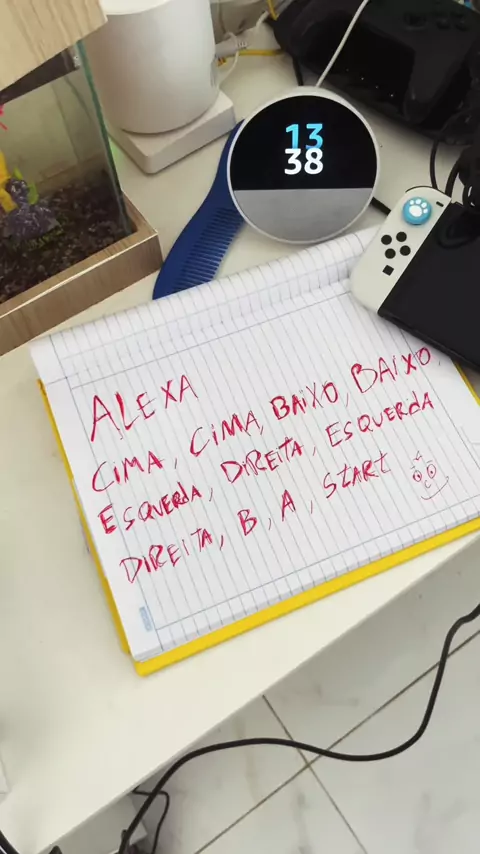 13
38
ALEXA
CIMA, CIMA, BAIXO, BAIXO,
ESQUERdA, DIREITA, ESQUERdA
DIREITA, B, A, START